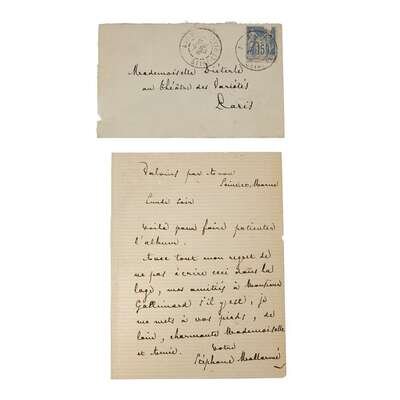 Mademoiselle Diéterle
au Théâtre des Variétés
Paris
15
Valvins par Avon
Seine-et-Marne
Lundi soir
Voilà pour faire patienter
l'album.
Avec tout mon regret de
ne pas écrire ceci dans la
loge, mes amitiés à Monsieur
Gallimard s'il y est, je
me mets à vos pieds, de
loin, charmante Mademoiselle
et amie.
Votre
Stéphane Mallarmé